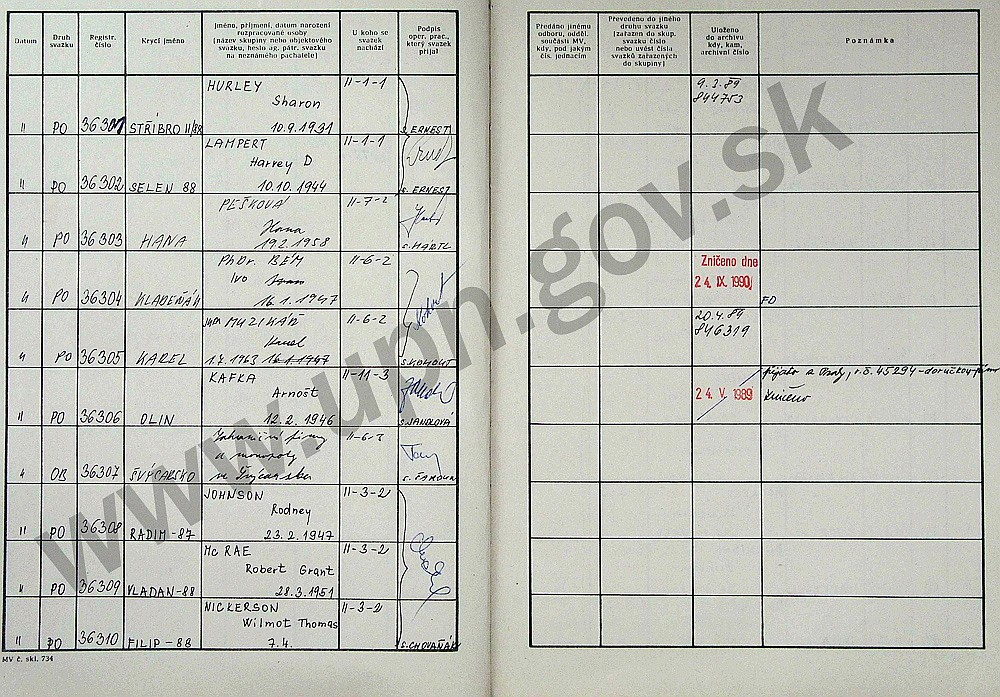 Datum
Druh svazku
Registr. číslo
Krycí jméno
Jméno, příjmení, datum narození
rozpracované osoby
(název skupiny nebo objektového
svazku, heslo ag. pátr. svazku
na neznámého pachatele)
U koho se
svazek
nachází
Podpis
oper. prac.,
který svazek
přijal
Předáno jinému
odboru, odděl.
součásti MV,
kdy, pod jakým
čís. jednacím
Převedeno do jiného
druhu svazku
(zařazen do skup.
svazku číslo
nebo uvést čísla
svazků zařazených
do skupiny)
Uloženo
do archivu
kdy, kam,
archivní číslo
Poznámka
HURLEY II-1-1 9.3.89
Sharon 844753
" PO 36301 STŘÍBRO II/88 10.9.1931 S. ERNEST
LAMPERT II-1-1
Harvey D
" PO 36302 SELEN 88 10.10.1944 S. ERNEST
PEŠKOVÁ II-7-2
Hana
" PO 36303 HANA 19.2.1958 S. HARTL
PhDr. BÉM II-6-2 Zničeno dne
Ivo 24. IX. 1990
" PO 36304 KLADEŇÁK 16.1.1947 FO
MUZIKÁŘ II-6-2 20.4.89
Karel 846319
" PO 36305 KAREL 1.7.1963 16.1.1947 S. KOHOUT
KAFKA II-11-3
Arnošt 24. V. 1989
" PO 36306 OLIN 12.2.1946 S. JANDLOVÁ
Zahraniční firmy II-6-3
a monopoly
" OB 36307 ŠVÝCARSKO ve Švýcarsku
JOHNSON II-3-2
Rodney
" PO 36308 RADIM-87 23.2.1947
Mc RAE II-3-2
Robert Grant
" PO 36309 VLADAN-88 28.3.1951
NICKERSON II-3-2
Wilmot Thomas
" PO 36310 FILIP-88 7.4. S. CHOVAŇÁK
MV č. skl. 734
www.upn.gov.sk